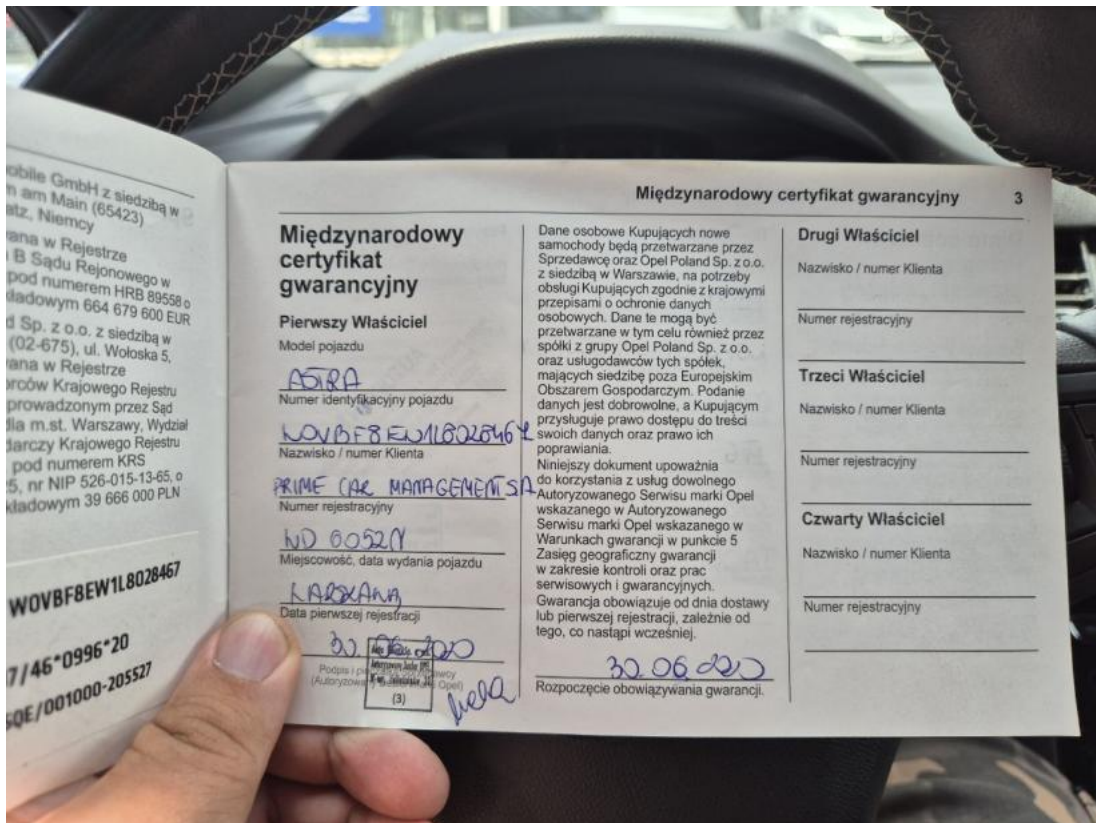 obile GmbH z siedzibą w
m am Main (65423)
atz, Niemcy
ana w Rejestrze
B Sądu Rejonowego w
pod numerem HRB 89558 o
kładowym 664 679 600 EUR
d Sp. z o.o. z siedzibą w
(02-675), ul. Wołoska 5,
ana w Rejestrze
orców Krajowego Rejestru
prowadzonym przez Sąd
dla m.st. Warszawy, Wydział
darczy Krajowego Rejestru
pod numerem KRS
5, nr NIP 526-015-13-65, o
kładowym 39 666 000 PLN
W0VBF8EW1L8028467
7/46*0996*20
SQE/001000-205527
Międzynarodowy certyfikat gwarancyjny 3
Międzynarodowy
certyfikat
gwarancyjny
Pierwszy Właściciel
Model pojazdu
ASTRA
Numer identyfikacyjny pojazdu
W0VBF8EW1L8028467
Nazwisko / numer Klienta
PRIME CAR MANAGEMENT SA
Numer rejestracyjny
WD 6052N
Miejscowość, data wydania pojazdu
WARSZAWA
Data pierwszej rejestracji
30.06.2020
Podpis i
(Autoryzowany Opel)
(3)
Dane osobowe Kupujących nowe
samochody będą przetwarzane przez
Sprzedawcę oraz Opel Poland Sp. z o.o.
z siedzibą w Warszawie, na potrzeby
obsługi Kupujących zgodnie z krajowymi
przepisami o ochronie danych
osobowych. Dane te mogą być
przetwarzane w tym celu również przez
spółki z grupy Opel Poland Sp. z o.o.
oraz usługodawców tych spółek,
mających siedzibę poza Europejskim
Obszarem Gospodarczym. Podanie
danych jest dobrowolne, a Kupującym
przysługuje prawo dostępu do treści
swoich danych oraz prawo ich
poprawiania.
Niniejszy dokument upoważnia
do korzystania z usług dowolnego
Autoryzowanego Serwisu marki Opel
wskazanego w Autoryzowanego
Serwisu marki Opel wskazanego w
Warunkach gwarancji w punkcie 5
Zasięg geograficzny gwarancji
w zakresie kontroli oraz prac
serwisowych i gwarancyjnych.
Gwarancja obowiązuje od dnia dostawy
lub pierwszej rejestracji, zależnie od
tego, co nastąpi wcześniej.
30.06.2020
Rozpoczęcie obowiązywania gwarancji.
Drugi Właściciel
Nazwisko / numer Klienta
Numer rejestracyjny
Trzeci Właściciel
Nazwisko / numer Klienta
Numer rejestracyjny
Czwarty Właściciel
Nazwisko / numer Klienta
Numer rejestracyjny